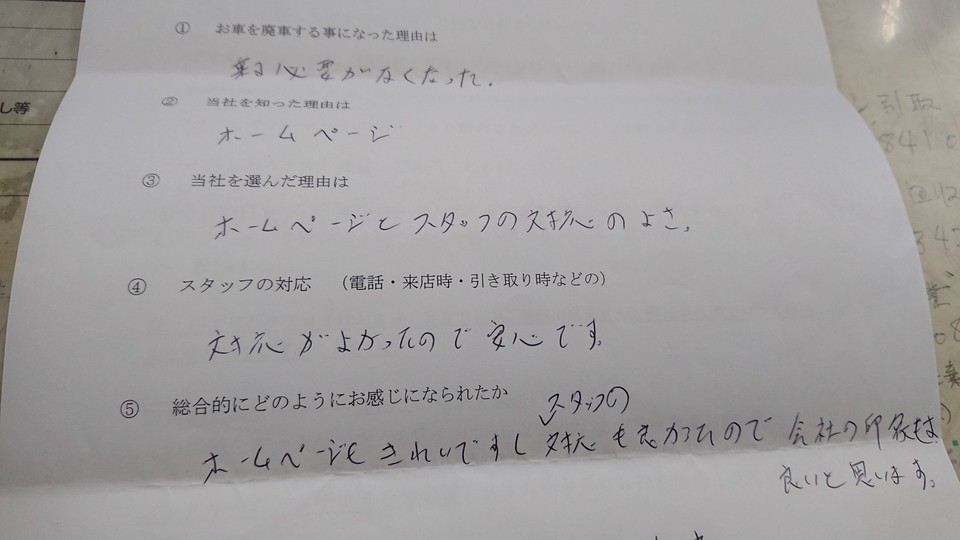 ① お車を廃車する事になった理由は
乗る必要がなくなった.
② 当社を知った理由は
ホームページ
③ 当社を選んだ理由は
ホームページとスタッフの対応のよさ。
④ スタッフの対応 （電話・来店時・引き取り時などの）
対応がよかったので安心です。
⑤ 総合的にどのようにお感じになられたか
スタッフの
ホームページもきれいですし 対応も良かったので 会社の印象は
良いと思います。
し等
引取